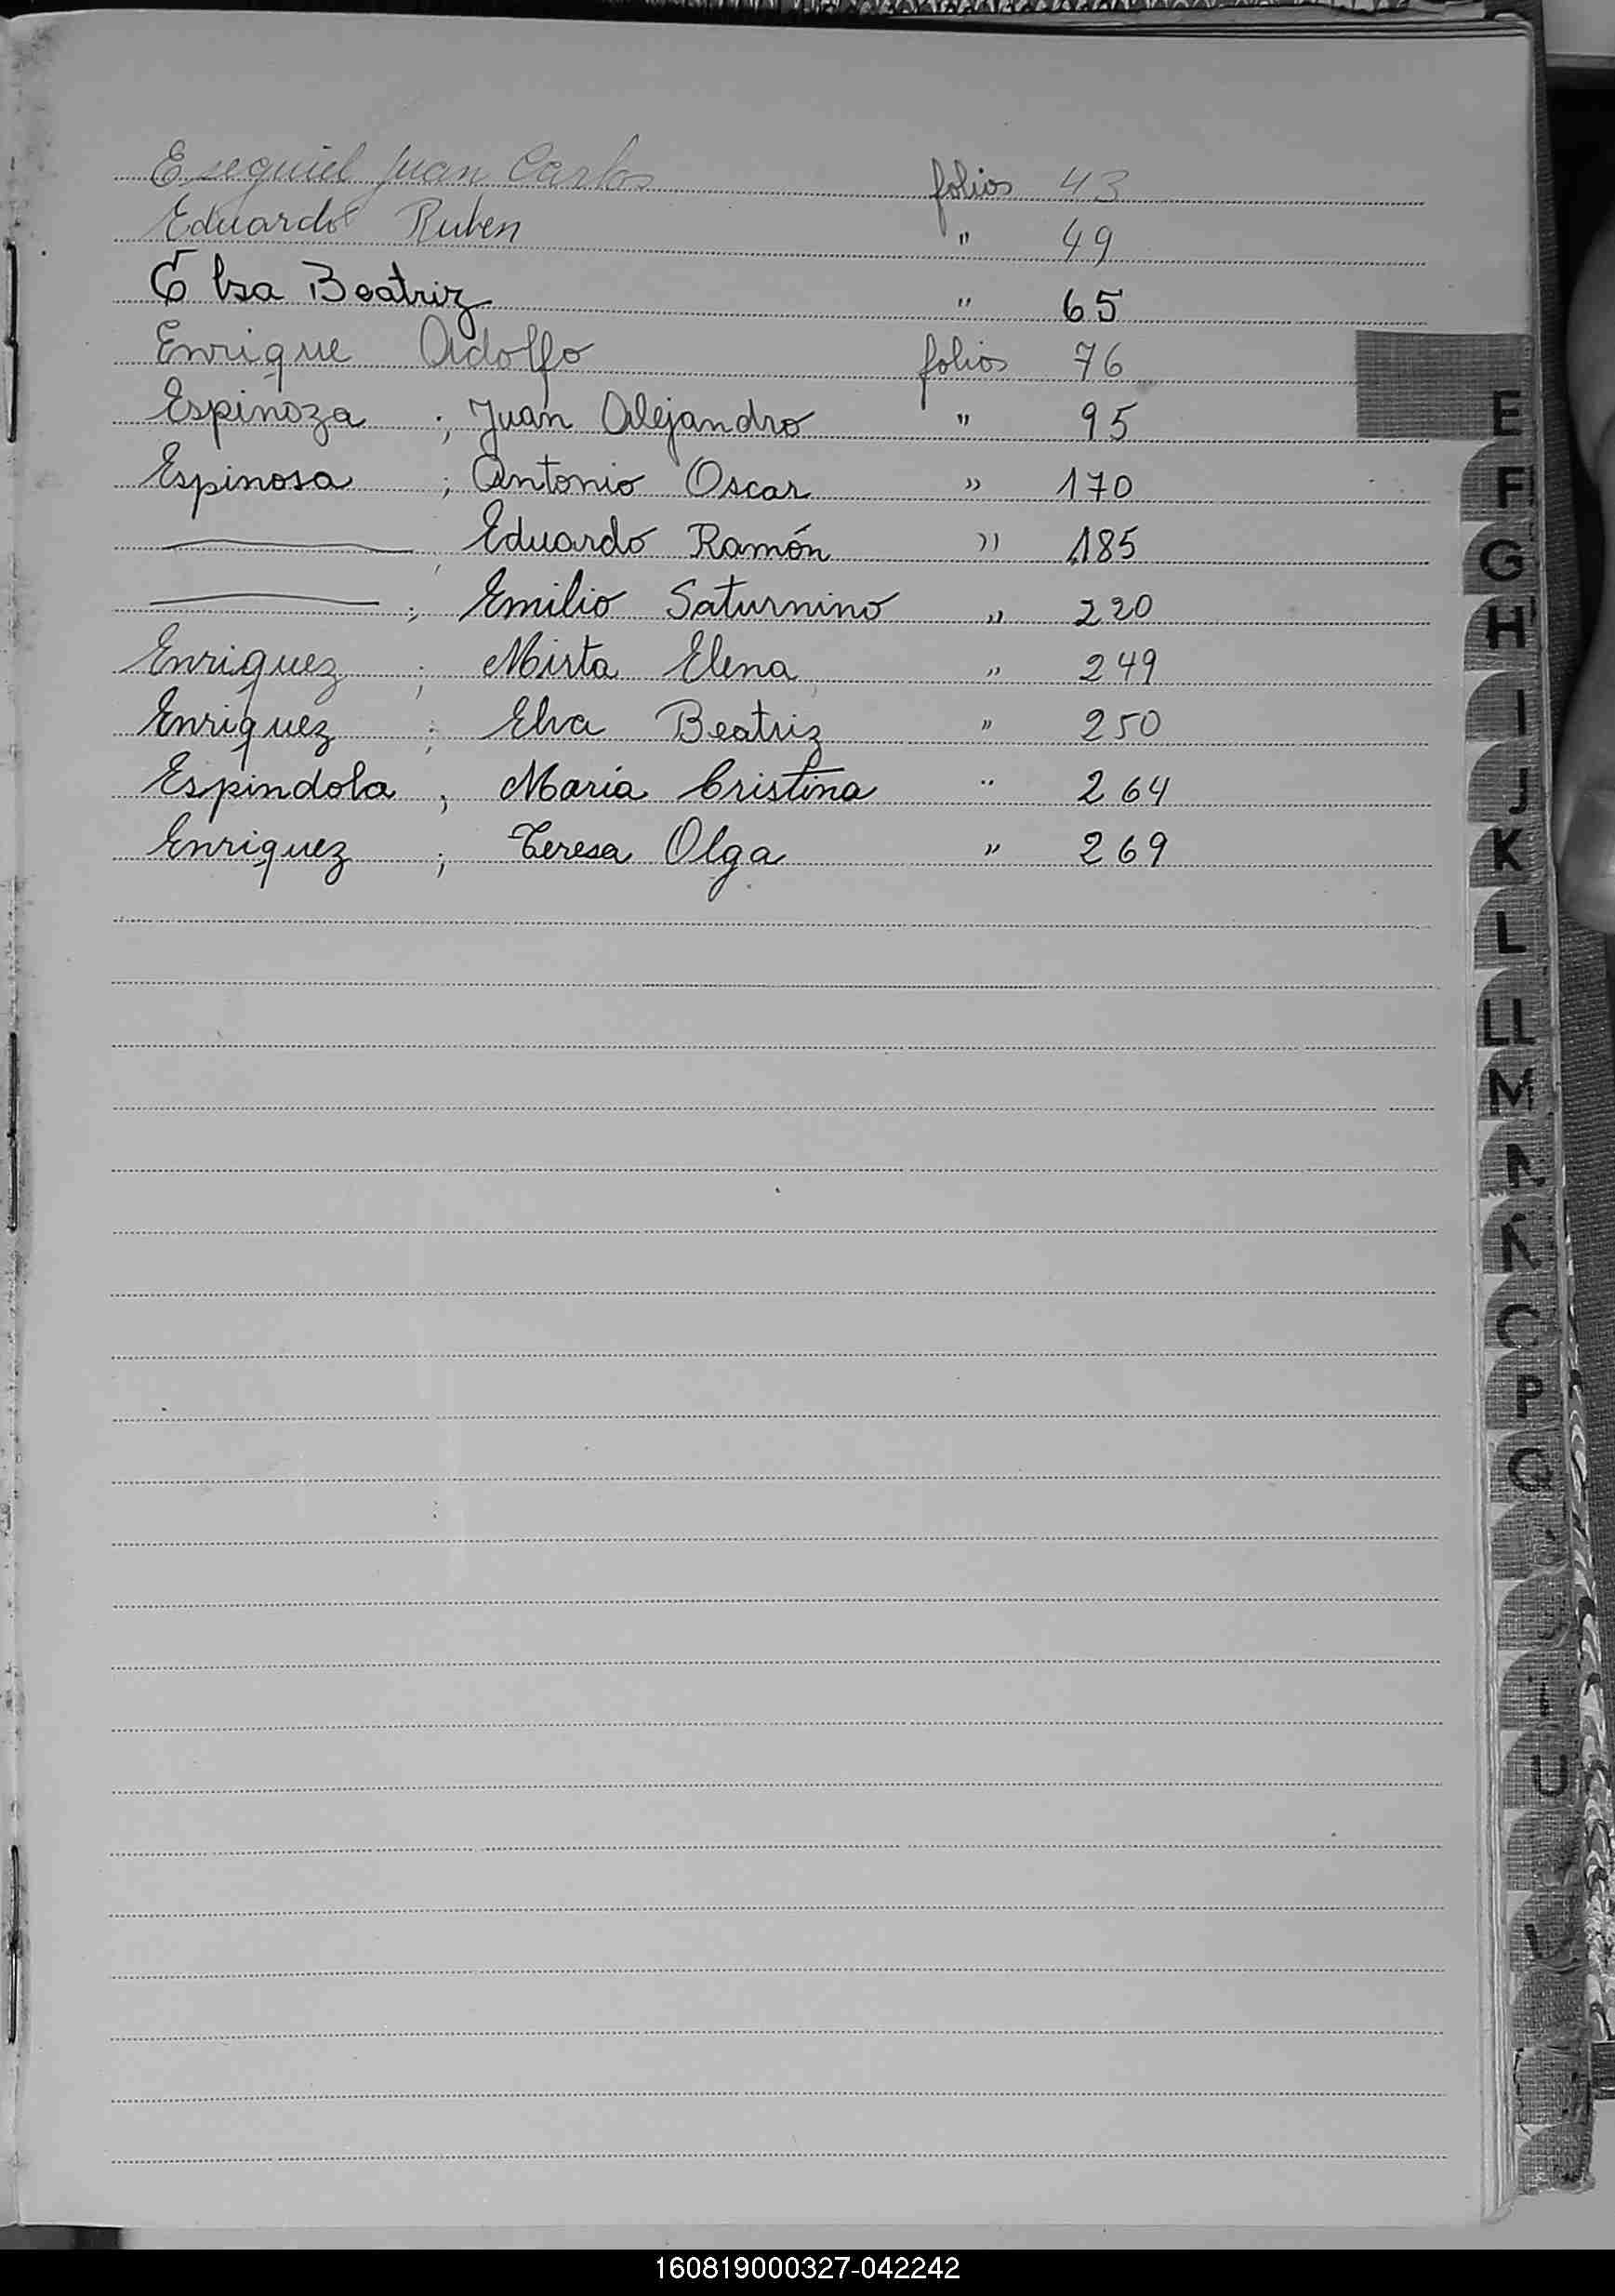 Esequiel Juan Carlos folios 43
Eduardo Ruben " 49
Elsa Beatriz " 65
Enrique Adolfo folios 76
Espinoza ; Juan Alejandro " 95
Espinosa ; Antonio Oscar " 170
——— , Eduardo Ramón " 185
——— ; Emilio Saturnino " 220
Enriquez ; Mirta Elena " 249
Enriquez ; Elva Beatriz " 250
Espindola ; María Cristina " 264
Enriquez ; Teresa Olga " 269
E
F
G
H
I
J
K
L
LL
M
P
Q
U
160819000327-042242